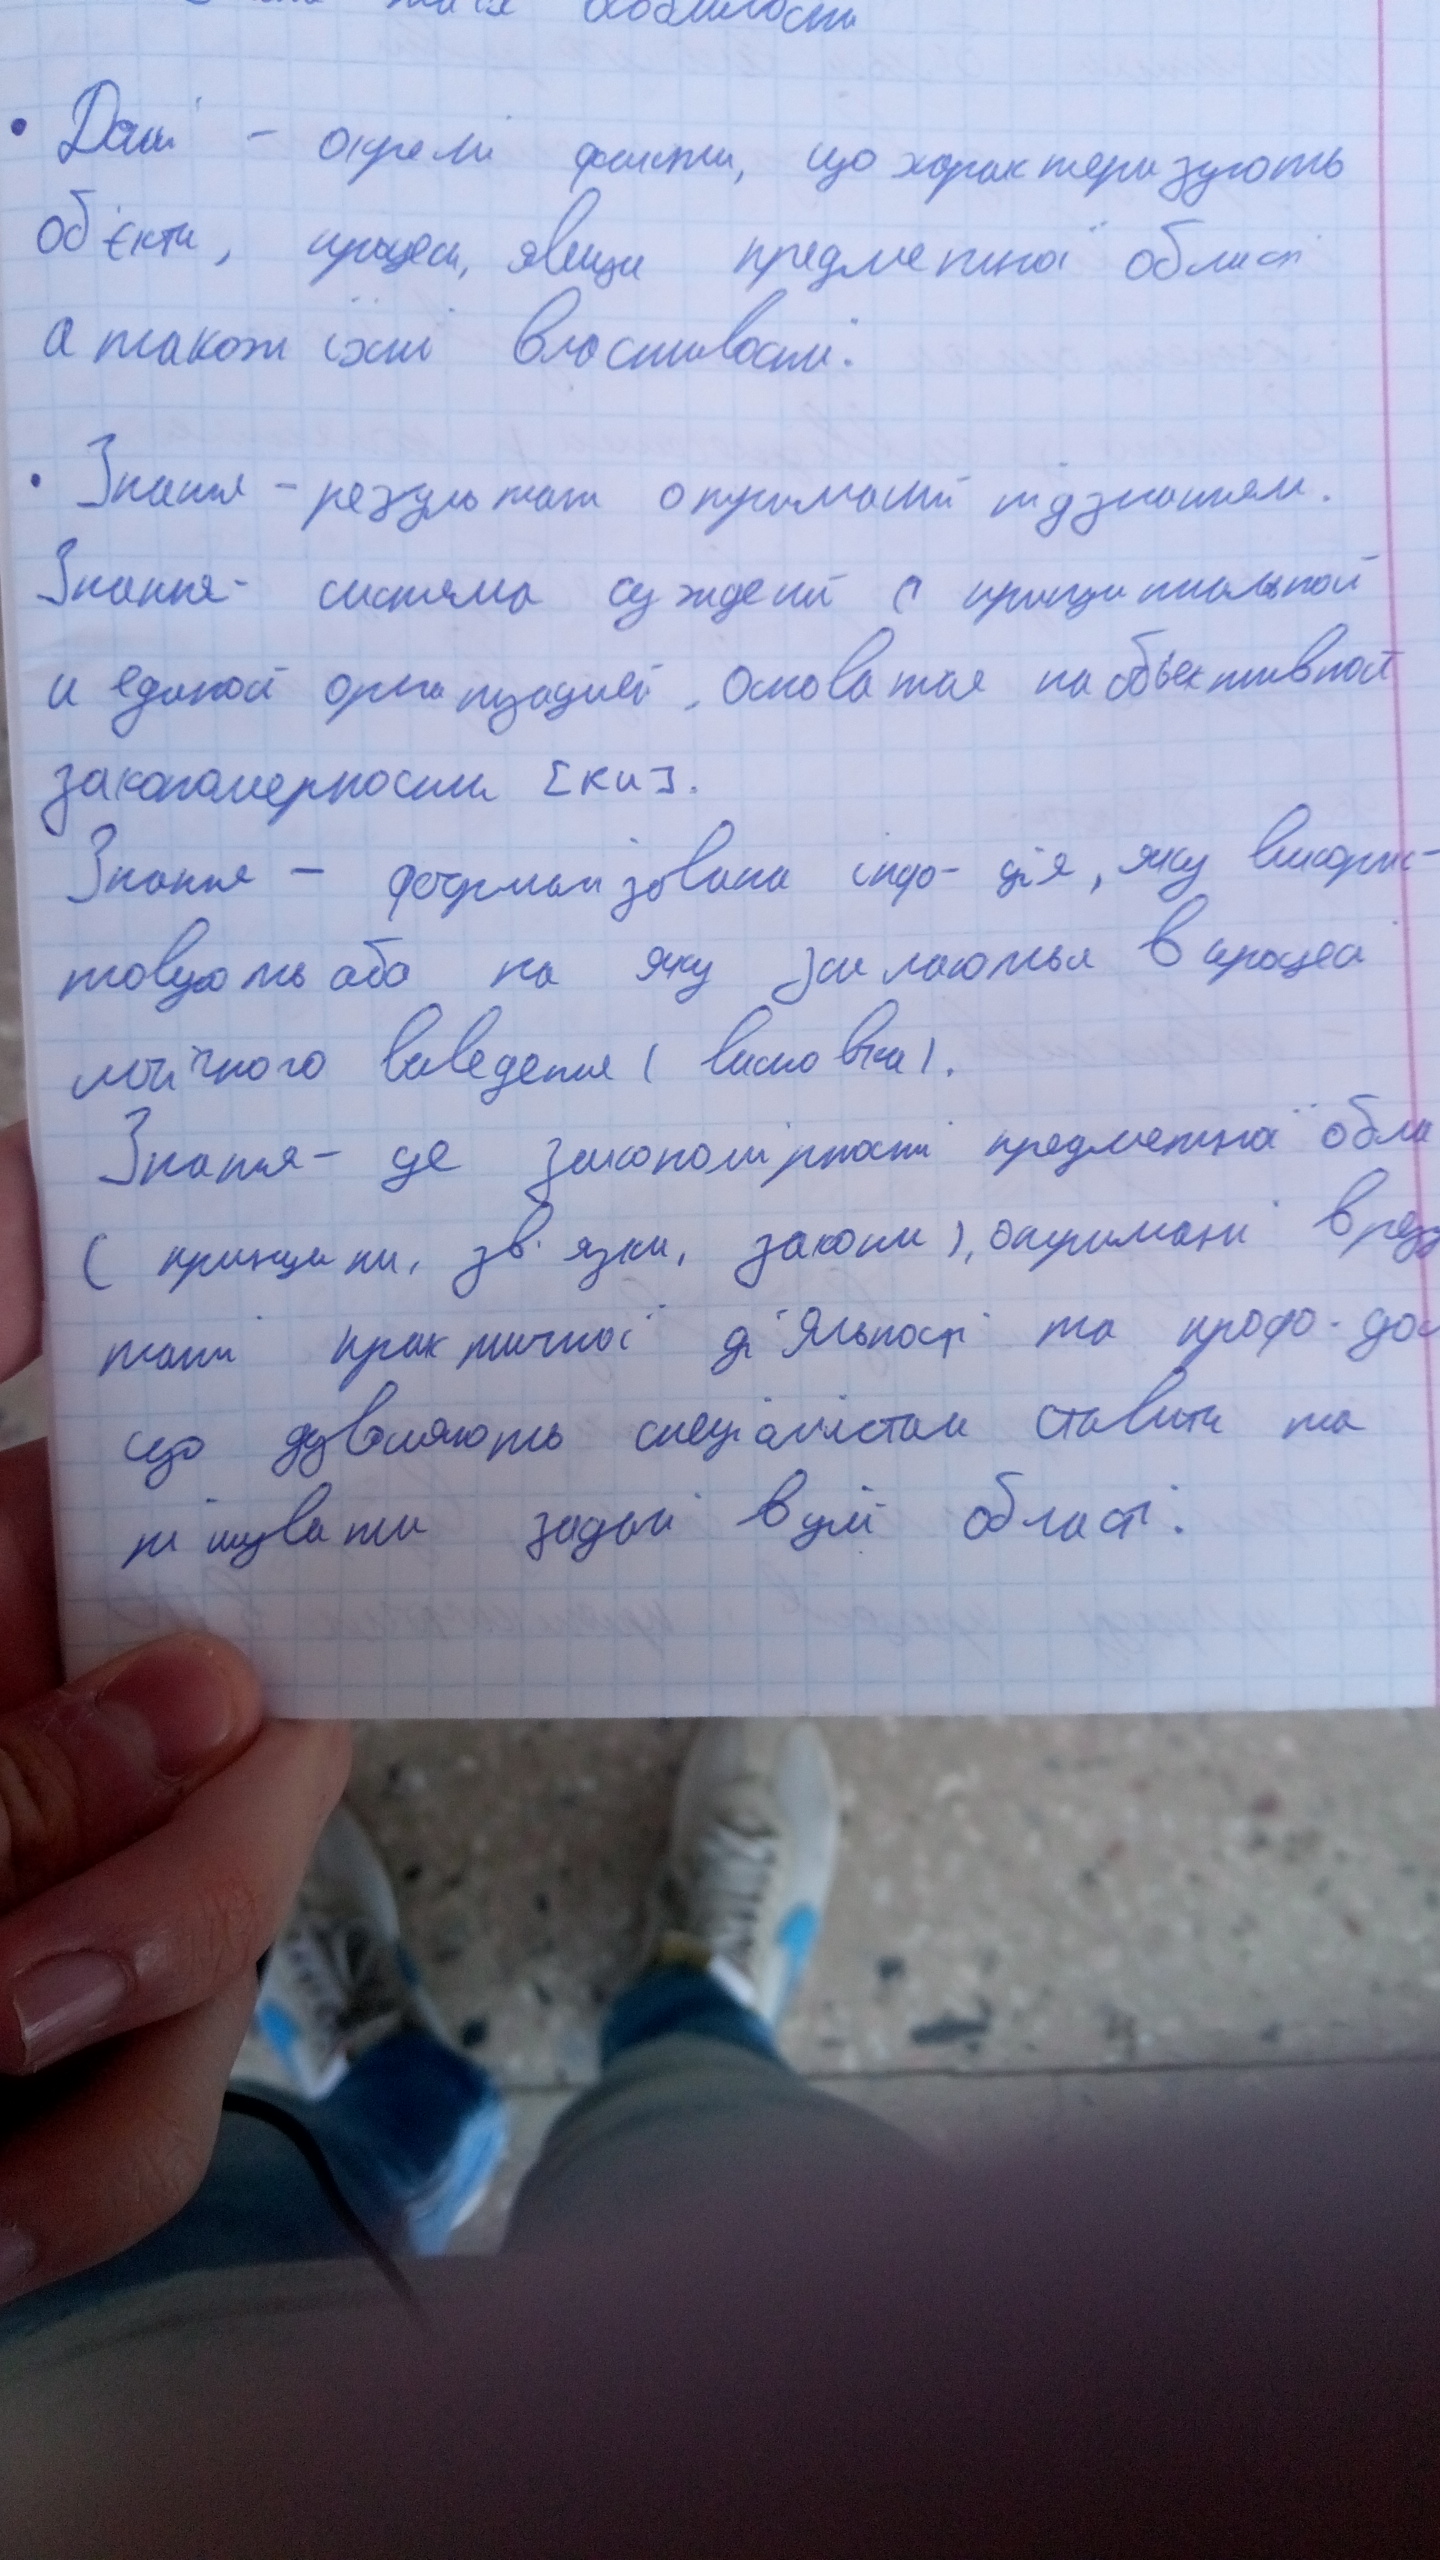 особливости
• Дані - окремі факти, що характеризують
об'єкти, процеси, явища предметної області
а також їхні властивості.
• Знання - результат отриманий пізнанням.
Знання - система суждений с принципиальной
и единой организацией, основатая на объективной
закономерности [ки].
Знання - формалізована інфо-ція, яку викорис-
товують або на яку посилаються в процесі
логічного виведення (висновка).
Знання - це закономірності предметної обла
(принципи, зв'язки, закони), отримані в резу
таті практичної діяльності та профо-дос
що дозволяють спеціалістам ставити та
рішувати задачі в цій області.